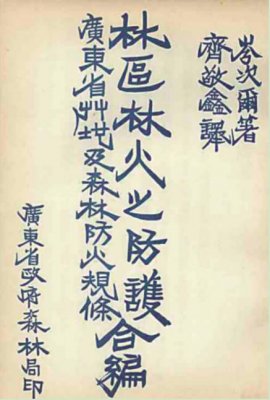 岑次爾著
齊敬鑫譯
林區林火之防護
廣東省艸及森林防火規條
合編
廣東省政府森林局印